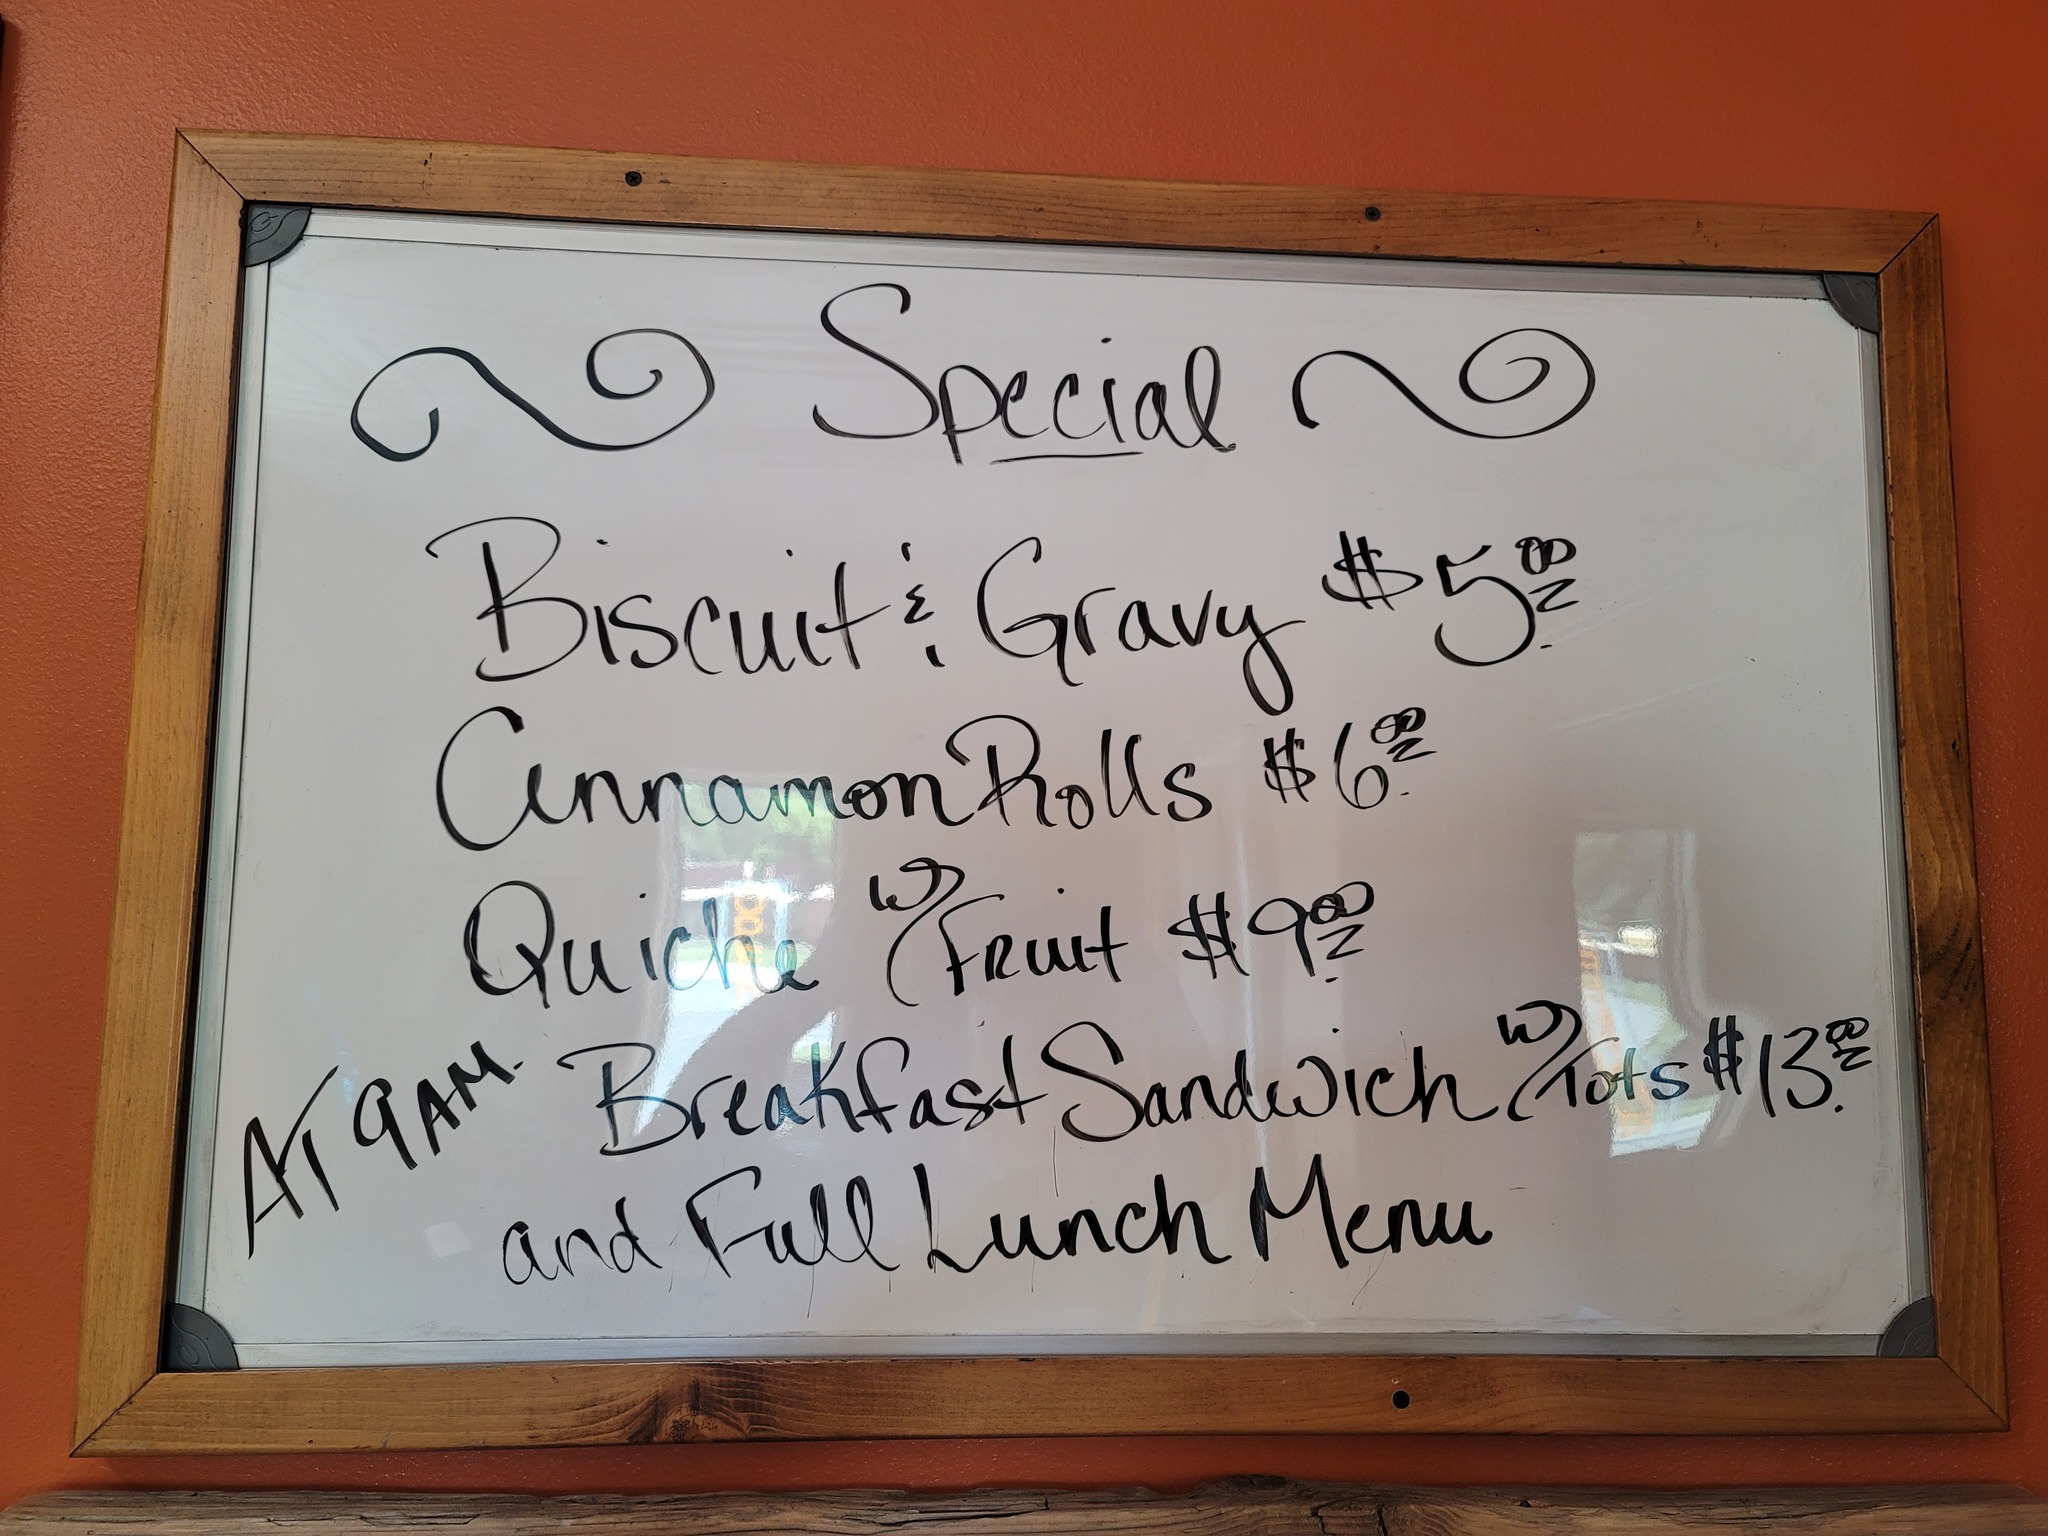 Special
Biscuit & Gravy $5.00
Cinnamon Rolls $6.00
Quiche w/Fruit $9.00
AT 9AM. Breakfast Sandwich w/Tots $13.00
and Full Lunch Menu